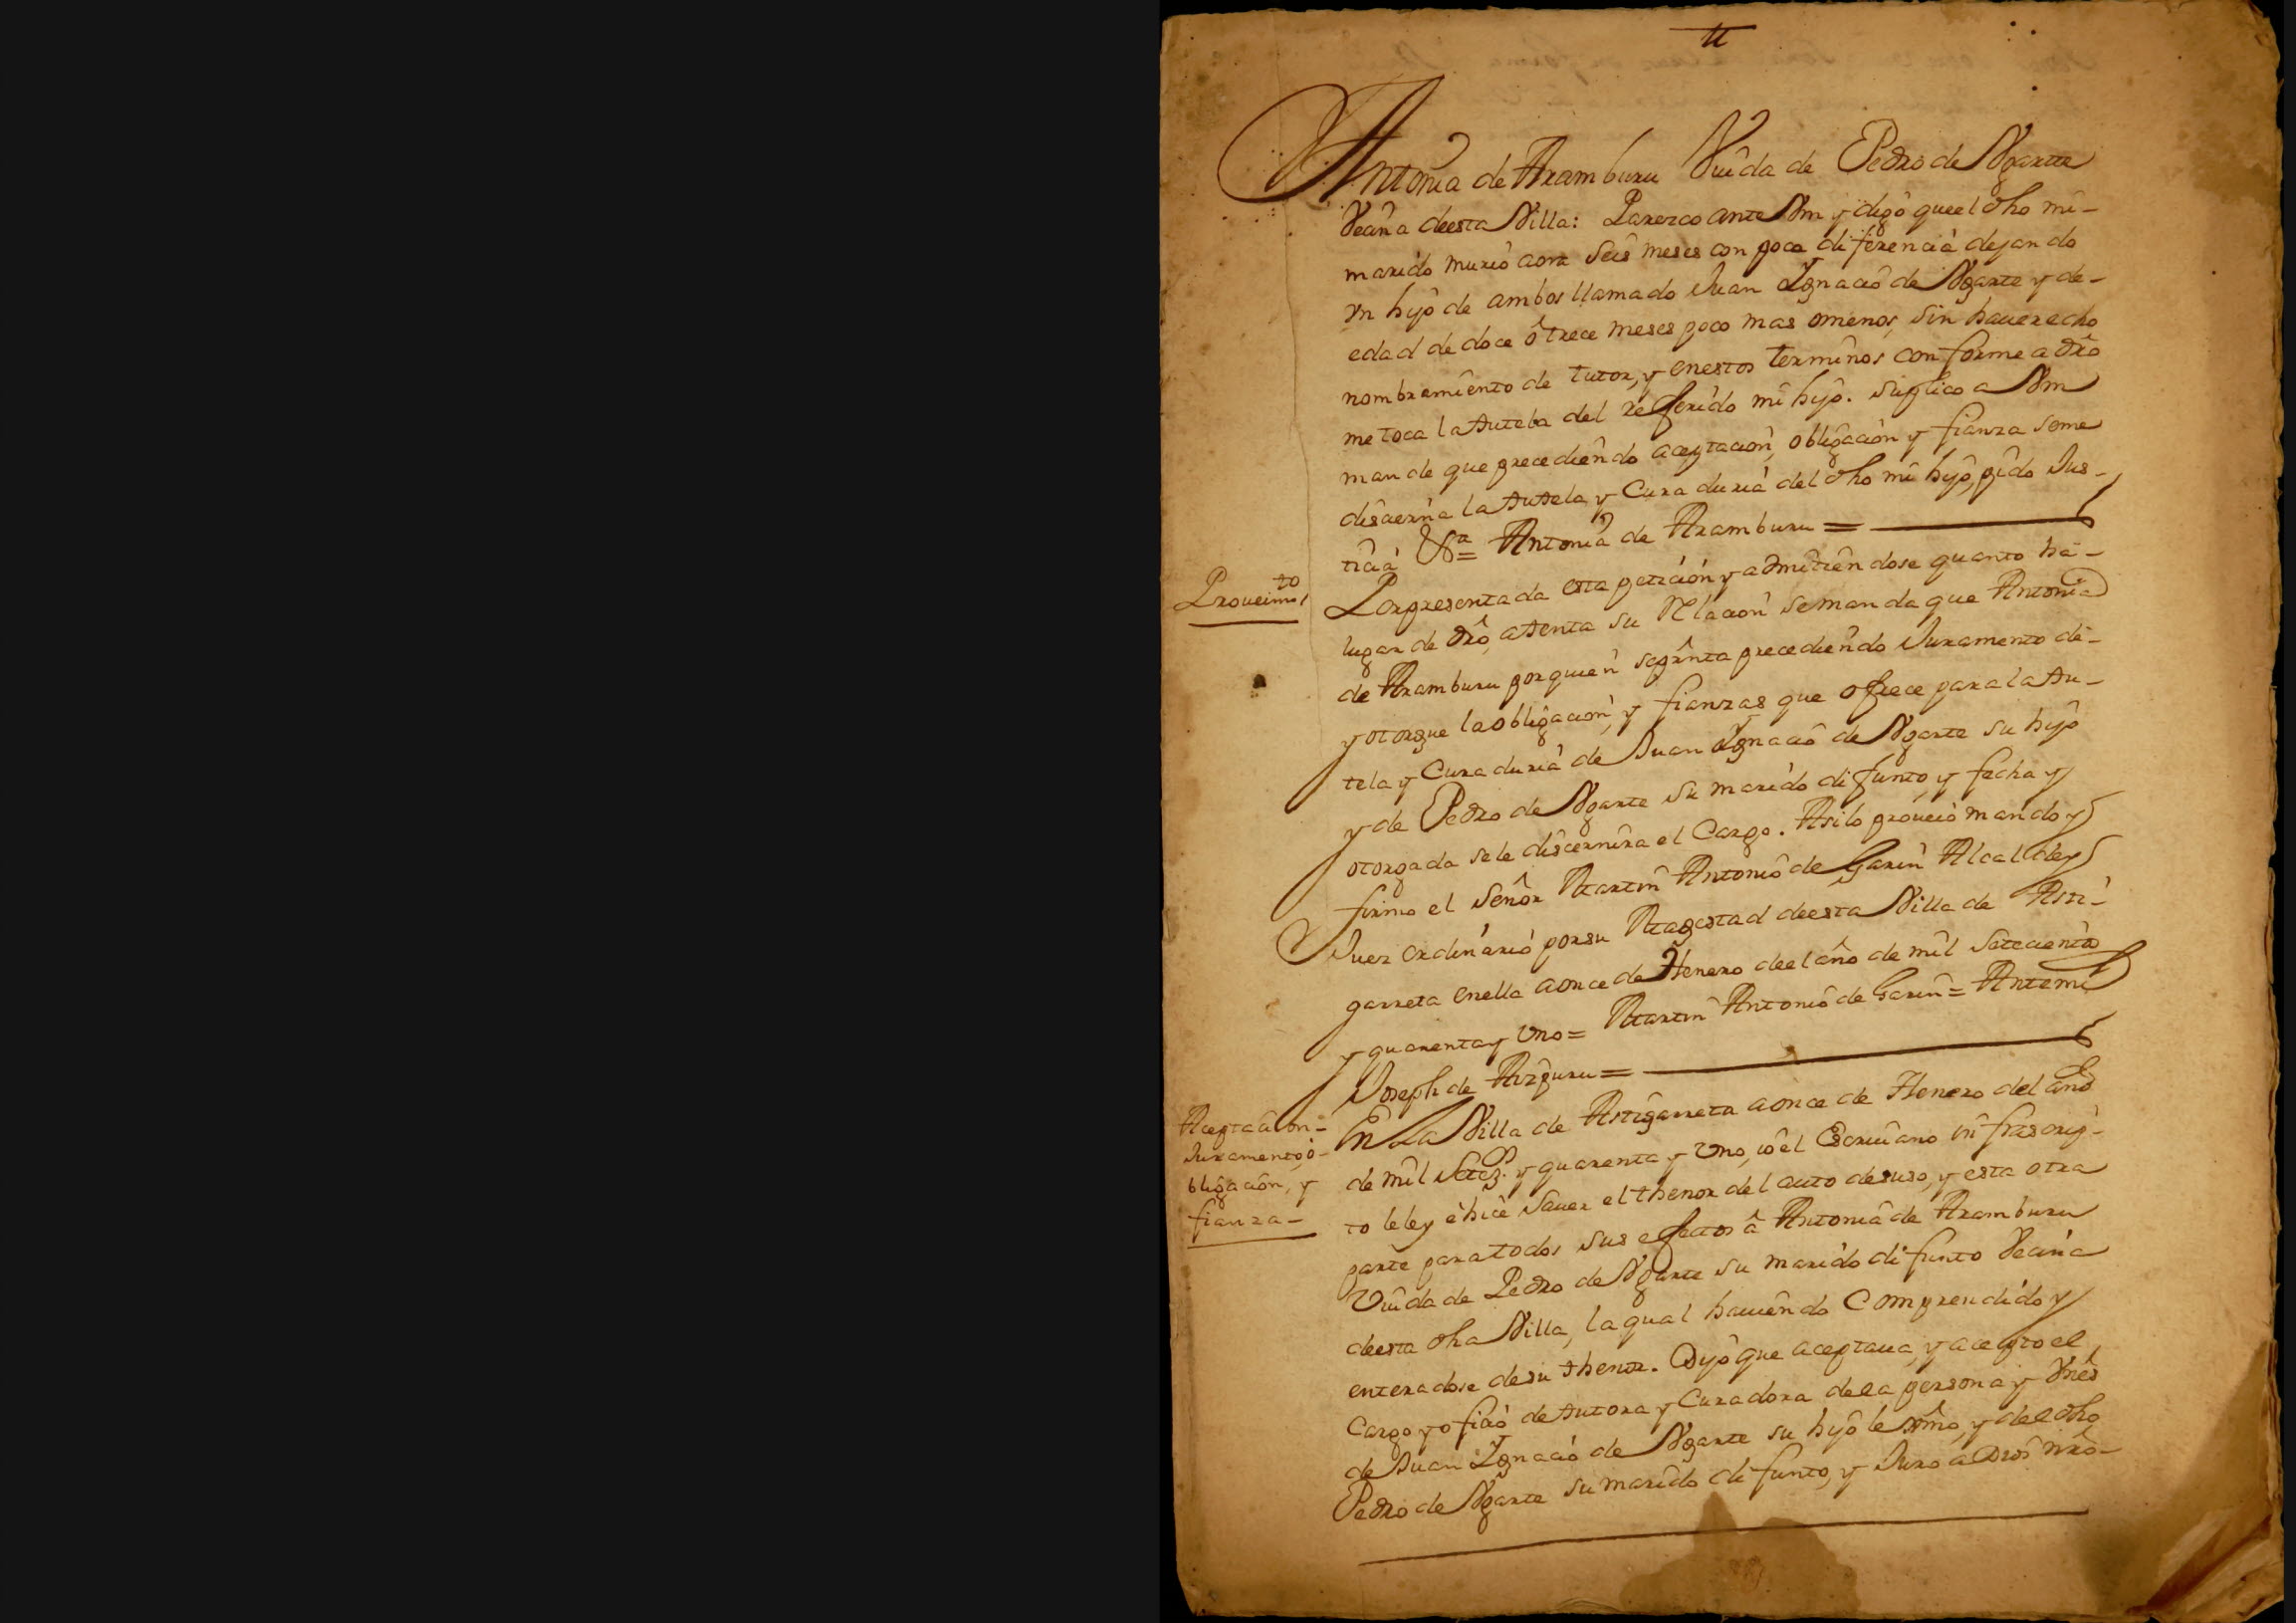 Antonia de Aramburu Viuda de Pedro de Vgarte
Vecina deesta Villa: Parezco ante Vm y digo queel dho mi-
marido murio aora seis meses con poca diferencia dejando
vn hijo de ambos llamado Juan Ygnacio de Vgarte y de-
edad de doce ô trece meses poco mas omenos, sin hauer echo
nombramiento de tutor, y enestos terminos conforme a dro
me toca latutela del referido mi hijo. Suplico a Vm
mande que precediendo aceptacion, obligacion y fianza seme
discierna latutela y Curaduria del dho mi hijo, pido Jus-
ticia &a = Antonia de Aramburu =
Proueimto
Porpresentada esta peticion y admitiendose quanto ha-
lugar de dro, atenta su Relacion semanda que Antonia
de Aramburu porquien sepresenta precediendo Juramento de-
y otorgue laobligacion, y fianzas que ofrece para latu-
tela y Curaduria de Juan Ygnacio de Vgarte su hijo
y de Pedro de Vgarte su marido difunto, y fecha y
otorgada sele discernira el Cargo. Asilo proueio mando y
firmo el Señor Martin Antonio de Garin Alcalde y
Juez ordinario porsu Magestad deesta Villa de Asti-
garreta enella aonce de Henero deel año de mil Setecientos
y quarenta y Vno = Martin Antonio de Garin = Antemi
Joseph de Aizpuru =
Aceptacion-
Juramento, o-
bligacion, y
fianza-
En La Villa de Astigarreta aonce de Henero del año
de mil Setez.s y quarenta y Vno, io el Escriuano infrascrip-
to leley é hice Sauer el thenor del auto desuso, y esta otra
parte paratodos sus efectos â Antonia de Aramburu
Viuda de Pedro de Vgarte su marido difunto Vecina
deesta dha Villa, laqual hauiendo Comprendido y
enteradose desu thenor. Dijo que aceptaua, y acepto el
Cargo y oficio de tutora y Curadora dela persona y Vnes
de Juan Ygnacio de Vgarte su hijo lexmo, y del dho
Pedro de Vgarte su marido difunto, y Juro a Dios nro-